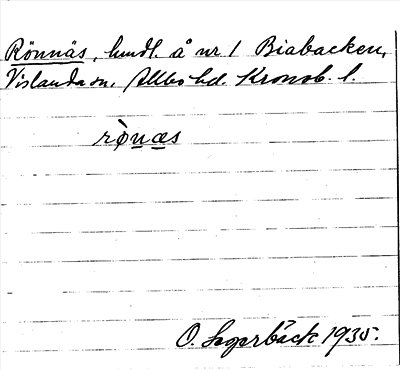 Rönnäs, hmdl. å nr 1 Biabacken,
Vislanda sn, Allbo hd. Kronob. l.
rø̀næs
O. Lagerbäck 1935.